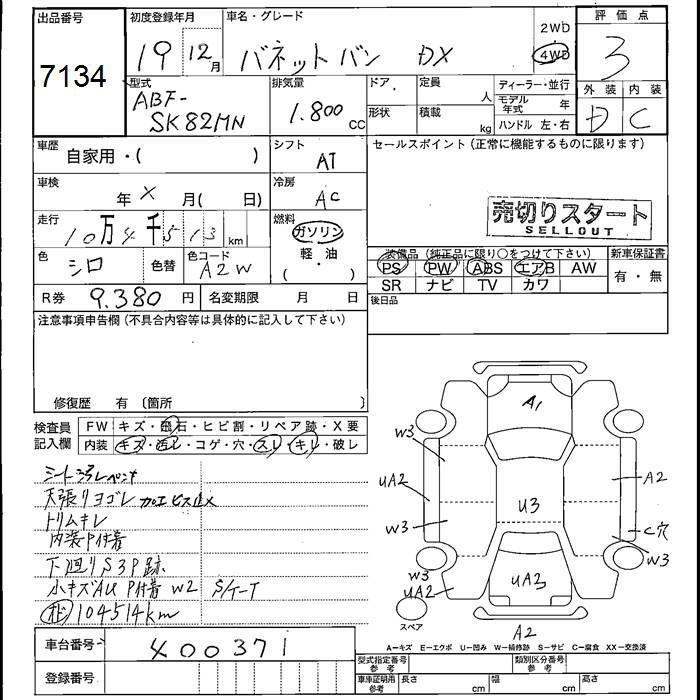 出品番号 初度登録年月 車名・グレード 2WD 評価点
7134 19 12月 バネットバン DX 4WD 3
型式 排気量 ドア 定員 人 ディーラー・並行 外装 内装
ABF- 1.800 CC 形状 積載 kg モデル年式 年 D C
SK82MN ハンドル 左・右
車歴 自家用・( ) シフト AT セールスポイント(正常に機能するものに限ります)
車検 年 X 月( 日) 冷房 AC
売切りスタート
SELLOUT
走行 10万4千513 km 燃料 ガソリン
軽・油
( )
色 シロ 色替 色コード A2W
装備品(純正品に限り○をつけて下さい) 新車保証書
PS PW ABS エアB AW 有・無
SR ナビ TV カワ
R券 9.380円 名変期限 月 日 後日品
注意事項申告欄(不具合内容等は具体的に記入して下さい)
修復歴 有〔箇所 〕
検査員記入欄 FW キズ・飛石・ヒビ割・リペア跡・X要
内装 キズ・汚レ・コゲ・穴・スレ・キレ・破レ
天張リヨゴレ
トリムキレ
内装P付着
下廻りS3P跡
小キズAU P付着 W2
104514km
A1
W3
UA2
A2
U3
W3
C穴
W3
W3
UA2
UA3
スペア
A2
A−キズ E−エクボ U−凹み W−補修跡 S−サビ C−腐食 XX−交換済
車台番号 400371
登録番号
型式指定番号 参考 類別区分番号 参考
車庫証明用 参考 長さ cm 幅 cm 高さ cm